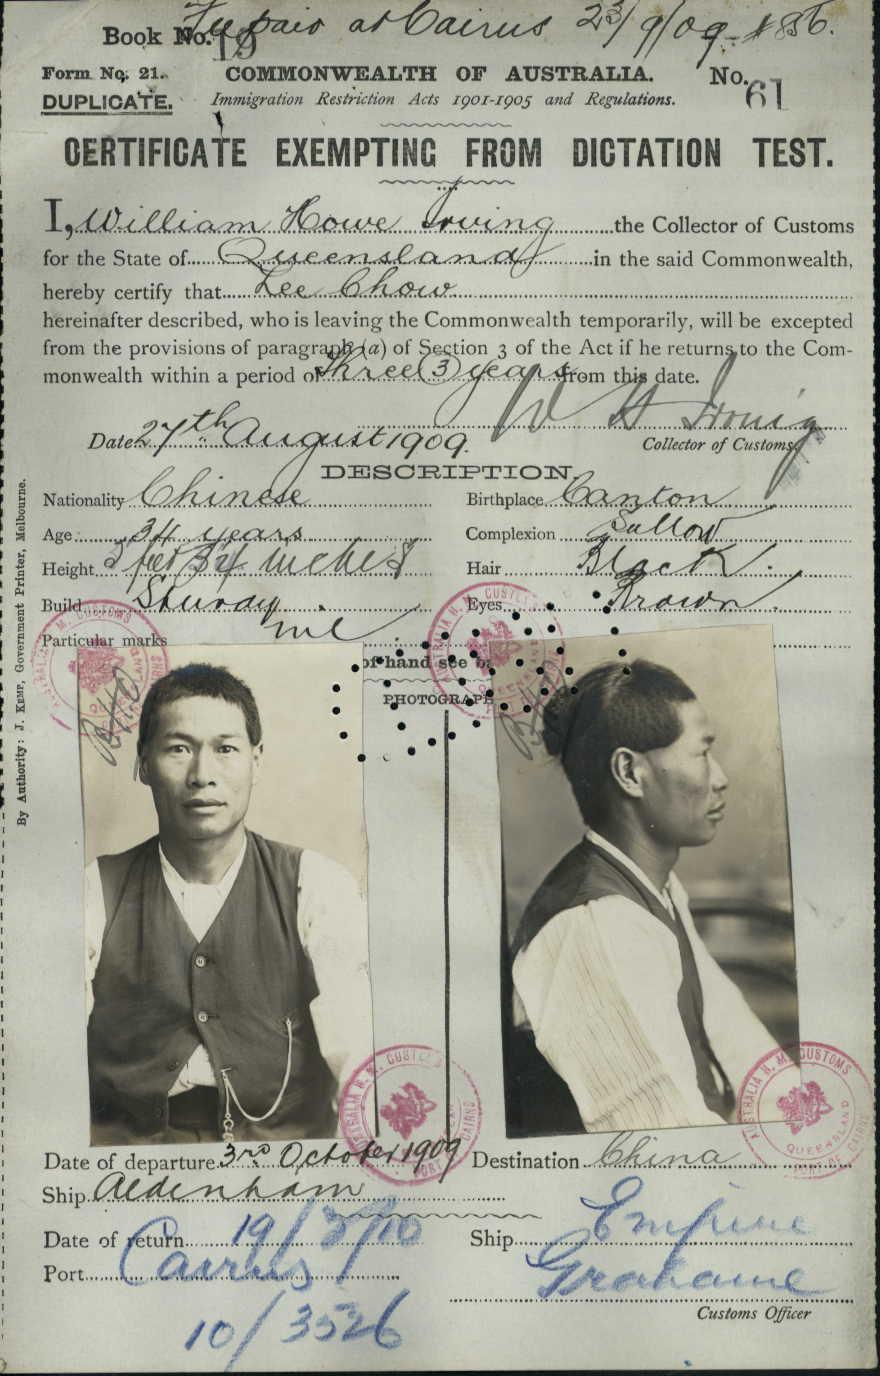 Fee paid at Cairns 23/9/09 - # 856.
Book No. 19
Form No. 21. COMMONWEALTH OF AUSTRALIA. No. 61
DUPLICATE. Immigration Restriction Acts 1901-1905 and Regulations.
CERTIFICATE EXEMPTING FROM DICTATION TEST.
I, William Howe Irving the Collector of Customs
for the State of Queensland in the said Commonwealth,
hereby certify that Lee Chow
hereinafter described, who is leaving the Commonwealth temporarily, will be excepted
from the provisions of paragraph (a) of Section 3 of the Act if he returns to the Com-
monwealth within a period of Three (3) years from this date.
W H Irving
Date 27th August 1909. Collector of Customs.
DESCRIPTION.
Nationality Chinese Birthplace Canton
Age 34 years Complexion Sallow
Height 5 feet 3¼ inches Hair Black.
Build Sturdy Eyes Brown.
Particular marks nil.
of hand see ba
PHOTOGRAPH
By Authority: J. KEMP, Government Printer, Melbourne.
AUSTRALIA H. M. CUSTOMS
QUEENSLAND
PORT OF CAIRNS
Date of departure 3rd October 1909 Destination China
Ship Aldenham
Date of return 19/3/10 Ship Empire
Port Cairns Grahame
Customs Officer
10/3526